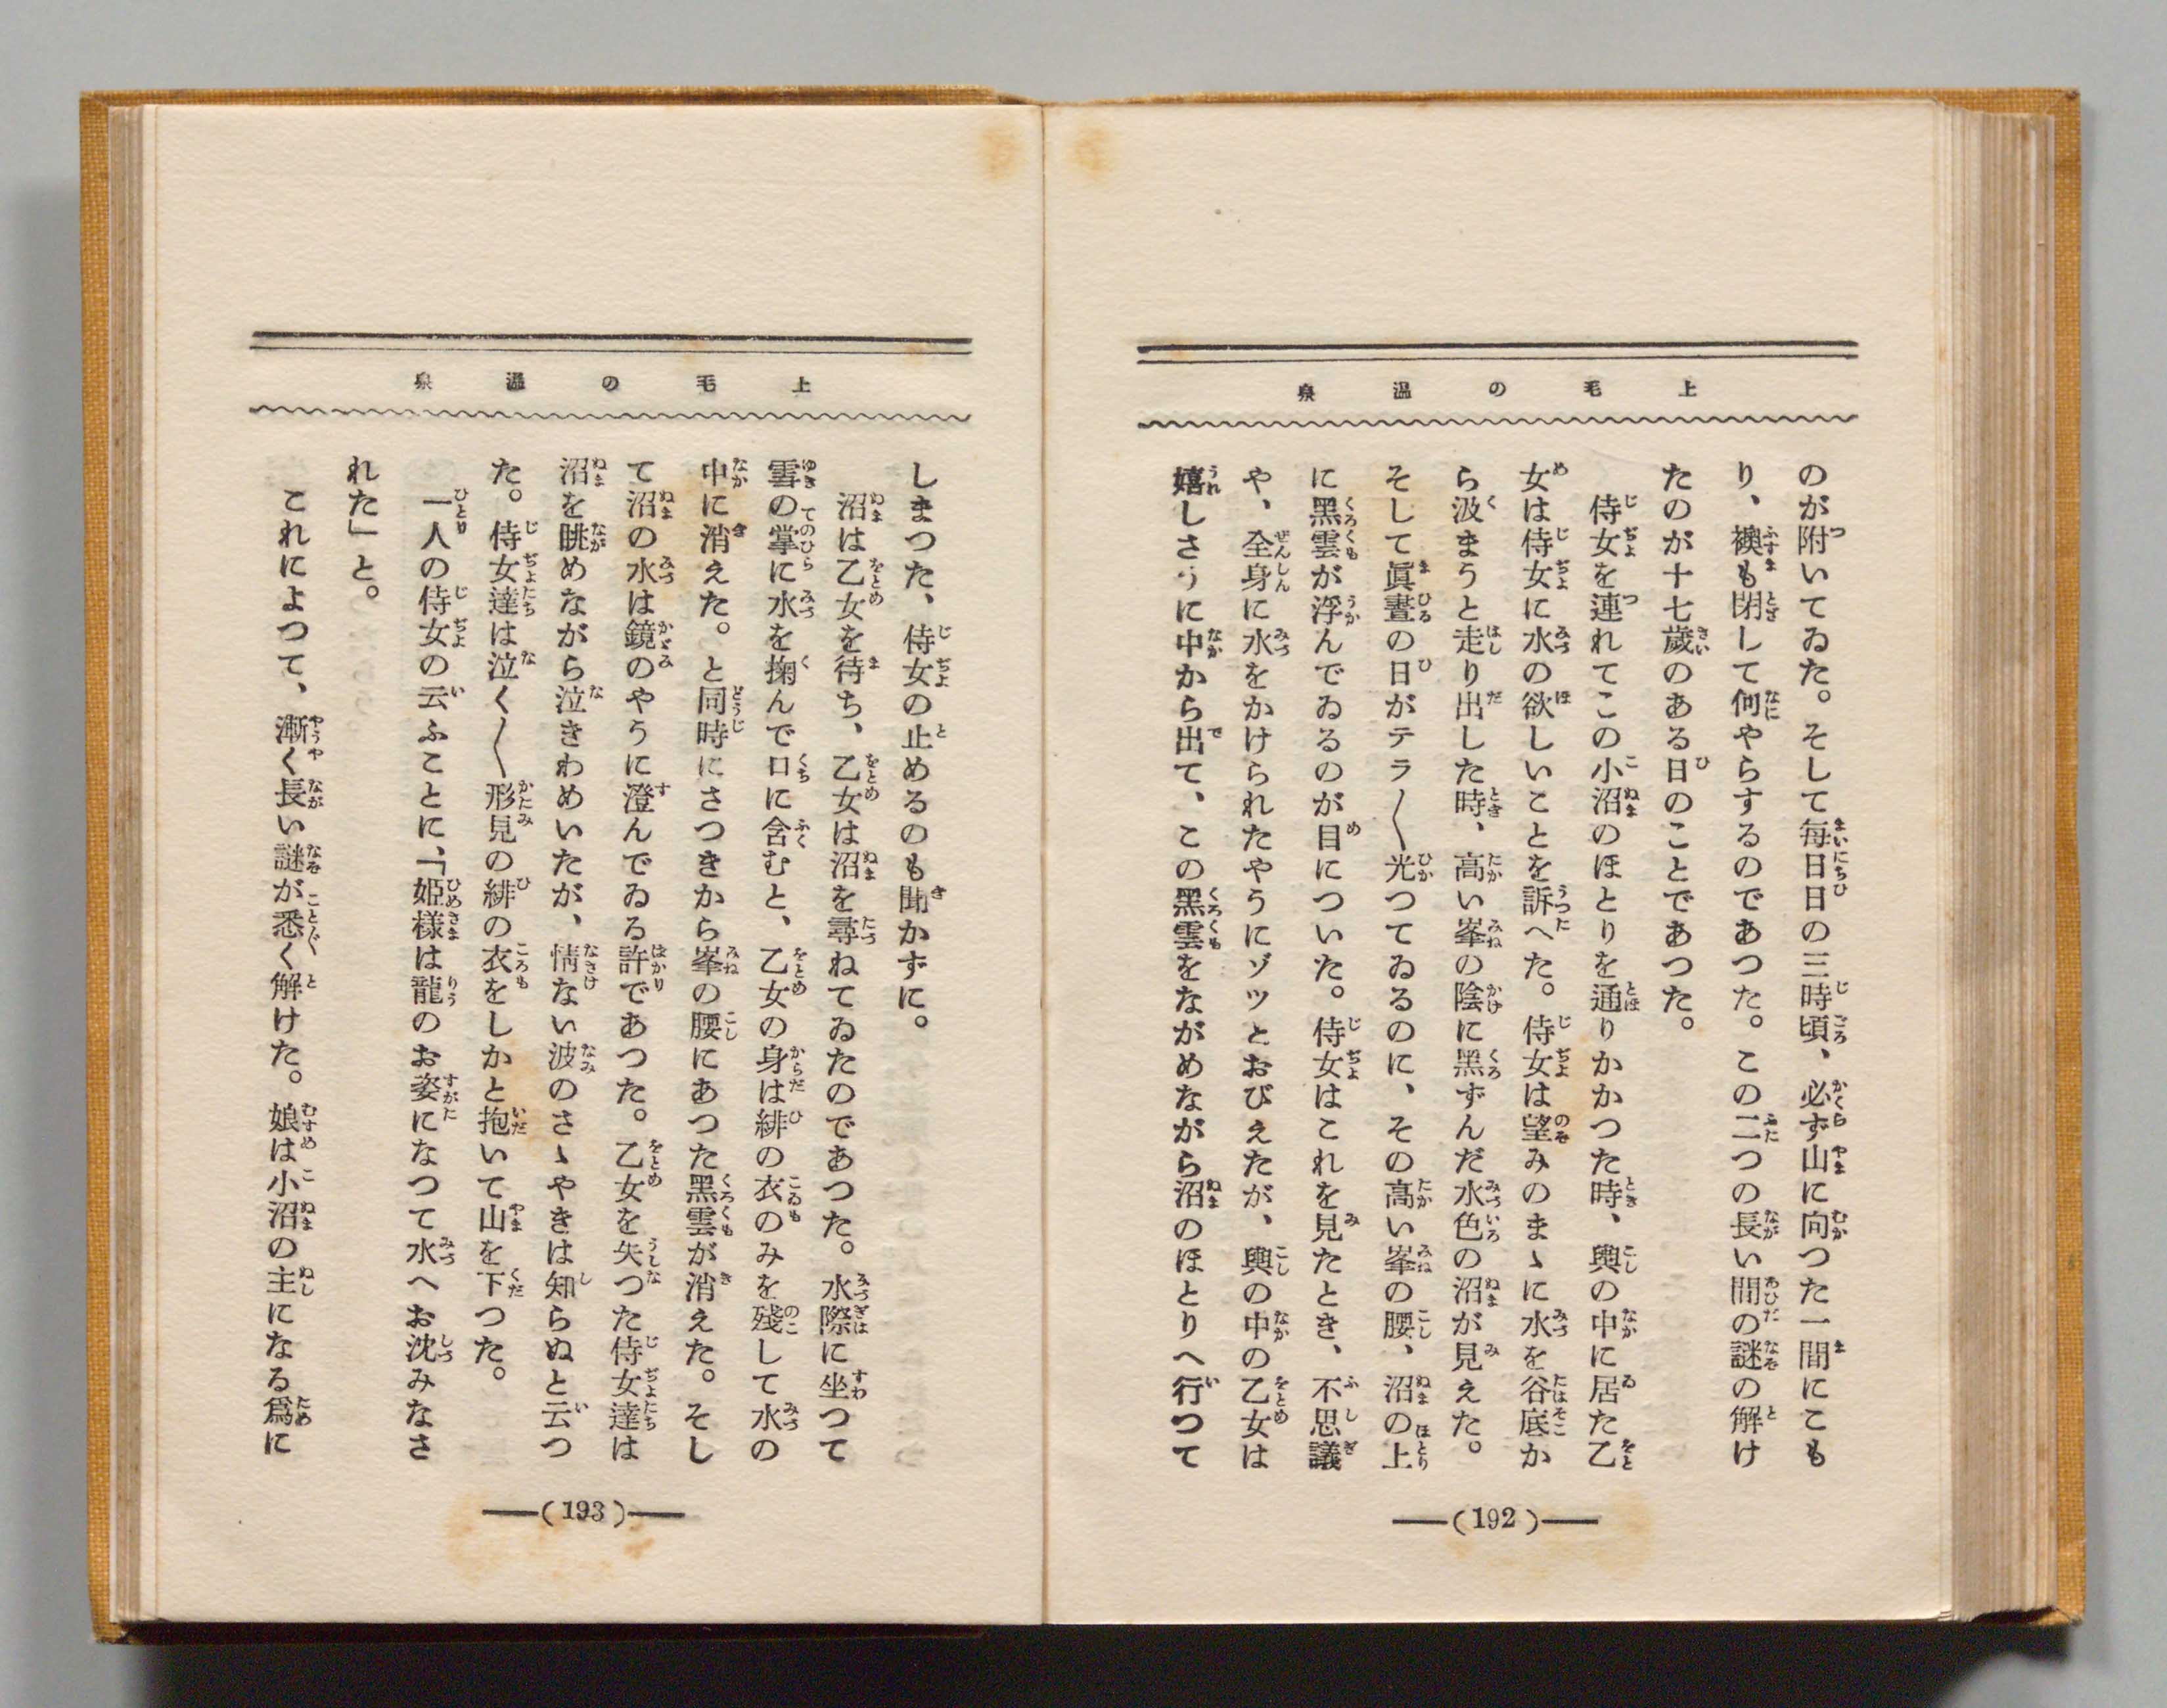 上毛の温泉
のが附いてゐた。そして毎日日の三時頃、必ず山に向つた一間にこも
り、襖も閉して何やらするのであつた。この二つの長い間の謎の解け
たのが十七歲のある日のことであつた。
侍女を連れてこの小沼のほとりを通りかかつた時、輿の中に居た乙
女は侍女に水の欲しいことを訴へた。侍女は望みのまゝに水を谷底か
ら汲まうと走り出した時、高い峯の陰に黑ずんだ水色の沼が見えた。
そして眞晝の日がテラ〱光つてゐるのに、その高い峯の腰、沼の上
に黑雲が浮んでゐるのが目についた。侍女はこれを見たとき、不思議
や、全身に水をかけられたやうにゾツとおびえたが、輿の中の乙女は
嬉しさうに中から出て、この黑雲をながめながら沼のほとりへ行つて
(192)
上毛の温泉
しまつた、侍女の止めるのも聞かずに。
沼は乙女を待ち、乙女は沼を尋ねてゐたのであつた。水際に坐つて
雪の掌に水を掬んで口に含むと、乙女の身は緋の衣のみを殘して水の
中に消えた。と同時にさつきから峯の腰にあつた黑雲が消えた。そし
て沼の水は鏡のやうに澄んでゐる許であつた。乙女を失つた侍女達は
沼を眺めながら泣きわめいたが、情ない波のさゝやきは知らぬと云つ
た。侍女達は泣く〱形見の緋の衣をしかと抱いて山を下つた。
一人の侍女の云ふことに、「姫樣は龍のお姿になつて水へお沈みなさ
れた」と。
これによつて、漸く長い謎が悉く解けた。娘は小沼の主になる爲に
(193)